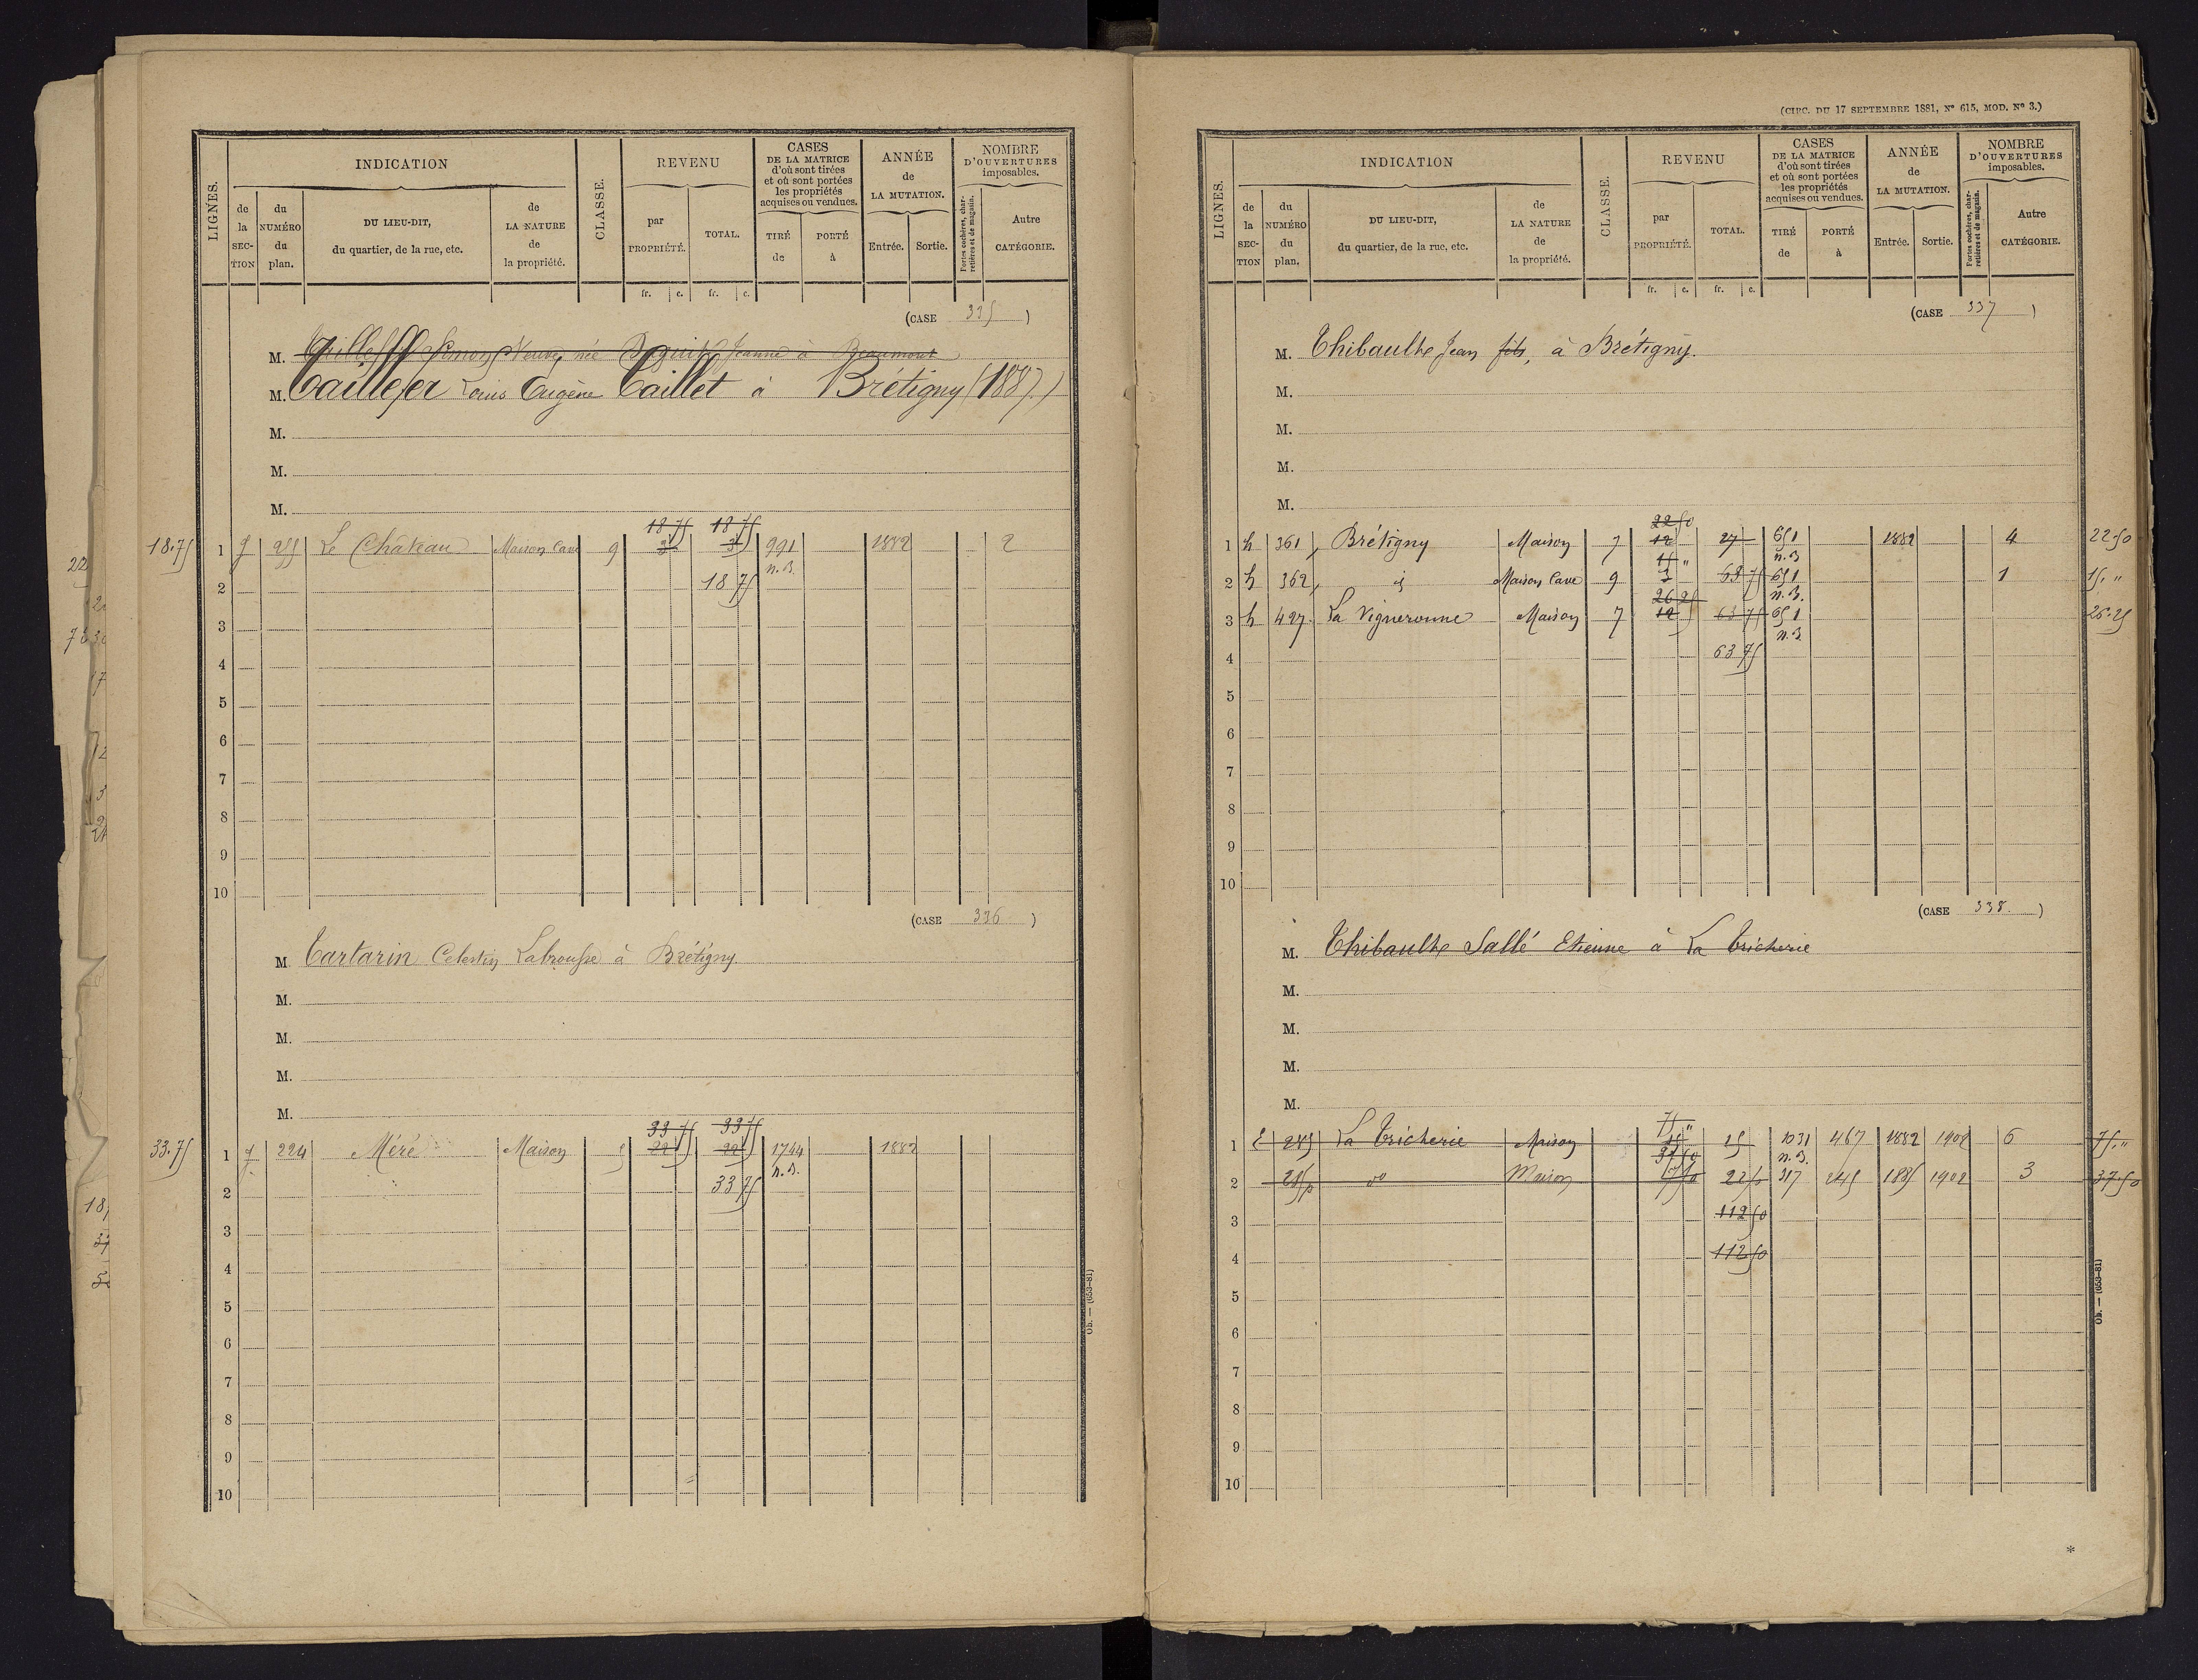 INDICATION
REVENU
CASES
DE LA MATRICE
d'où sont tirées
et où sont portées
les propriétés
acquises ou vendues.
ANNÉE
de
LA MUTATION.
NOMBRE
D'OUVERTURES
imposables.
LIGNES.
de la SECTION
du NUMÉRO du plan.
DU LIEU-DIT,
du quartier, de la rue, etc.
de LA NATURE de la propriété.
CLASSE.
par PROPRIÉTÉ.
TOTAL.
TIRÉ de
PORTÉ à
Entrée.
Sortie.
Portes cochères, charretières et de magasin.
Autre CATÉGORIE.
fr. c. fr. c.
(CASE 335)
M. Simon Veuve née Jeanne à Beaumont
M. Taillefer Louis Eugène Taillet à Brétigny (1887.)
M.
M.
M.
18 75 18 75
18.75 1 255 Le Château Maison Cave 9 3 3 991 1882 2
2 18 75 n.B.
3
4
5
6
7
8
9
10
(CASE 336)
M. Tartarin Celestin Labrousse à Brétigny.
M.
M.
M.
M.
33 75 33 75
33.75 1 224 Méré Maison 1744 1882
2 33 75 n.B.
3
4
5
6
7
8
9
10
Ob. — (653-81)
(CIRC. DU 17 SEPTEMBRE 1881, N° 615, MOD. N° 3.)
INDICATION
REVENU
CASES
DE LA MATRICE
d'où sont tirées
et où sont portées
les propriétés
acquises ou vendues.
ANNÉE
de
LA MUTATION.
NOMBRE
D'OUVERTURES
imposables.
LIGNES.
de la SECTION
du NUMÉRO du plan.
DU LIEU-DIT,
du quartier, de la rue, etc.
de LA NATURE de la propriété.
CLASSE.
par PROPRIÉTÉ.
TOTAL.
TIRÉ de
PORTÉ à
Entrée.
Sortie.
Portes cochères, charretières et de magasin.
Autre CATÉGORIE.
fr. c. fr. c.
(CASE 337)
M. Thibault Jean fils, à Brétigny.
M.
M.
M.
M.
22 50
1 h 361 Brétigny Maison 7 12 27 651 1882 4 22.50
15 " n.B
2 h 362 id Maison Cave 9 3 63 75 651 1 15. "
26 25 n.B.
3 h 427 La Vigneronne Maison 7 12 63 75 651 26.25
4 63 75 n.B
5
6
7
8
9
10
(CASE 338.)
M. Thibault Sallé Etienne à La Tricherie
M.
M.
M.
M.
75 "
1 E 285 La Tricherie Maison 15 15 1031 467 1882 1902 6 75."
37 50 n.B.
2 285p do Maison 7 50 22 50 317 245 1885 1902 3 37.50
3 112 50
4 112 50
5
6
7
8
9
10
Ob. — (653-81)
*